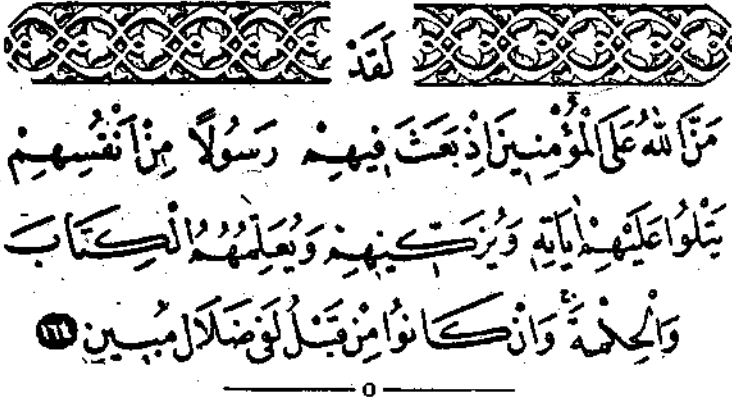 لَقَدْ
مَنَّ اللهُ عَلَى الْمُؤْمِنِينَ اِذْ بَعَثَ فِيهِمْ رَسُولًا مِنْ اَنْفُسِهِمْ
يَتْلُوا عَلَيْهِمْ اٰيَاتِهِ وَيُزَكِّيهِمْ وَيُعَلِّمُهُمُ الْكِتَابَ
وَالْحِكْمَةَۚ وَاِنْ كَانُوا مِنْ قَبْلُ لَفِى ضَلَالٍ مُبِينٍ ﴿١٦٤﴾